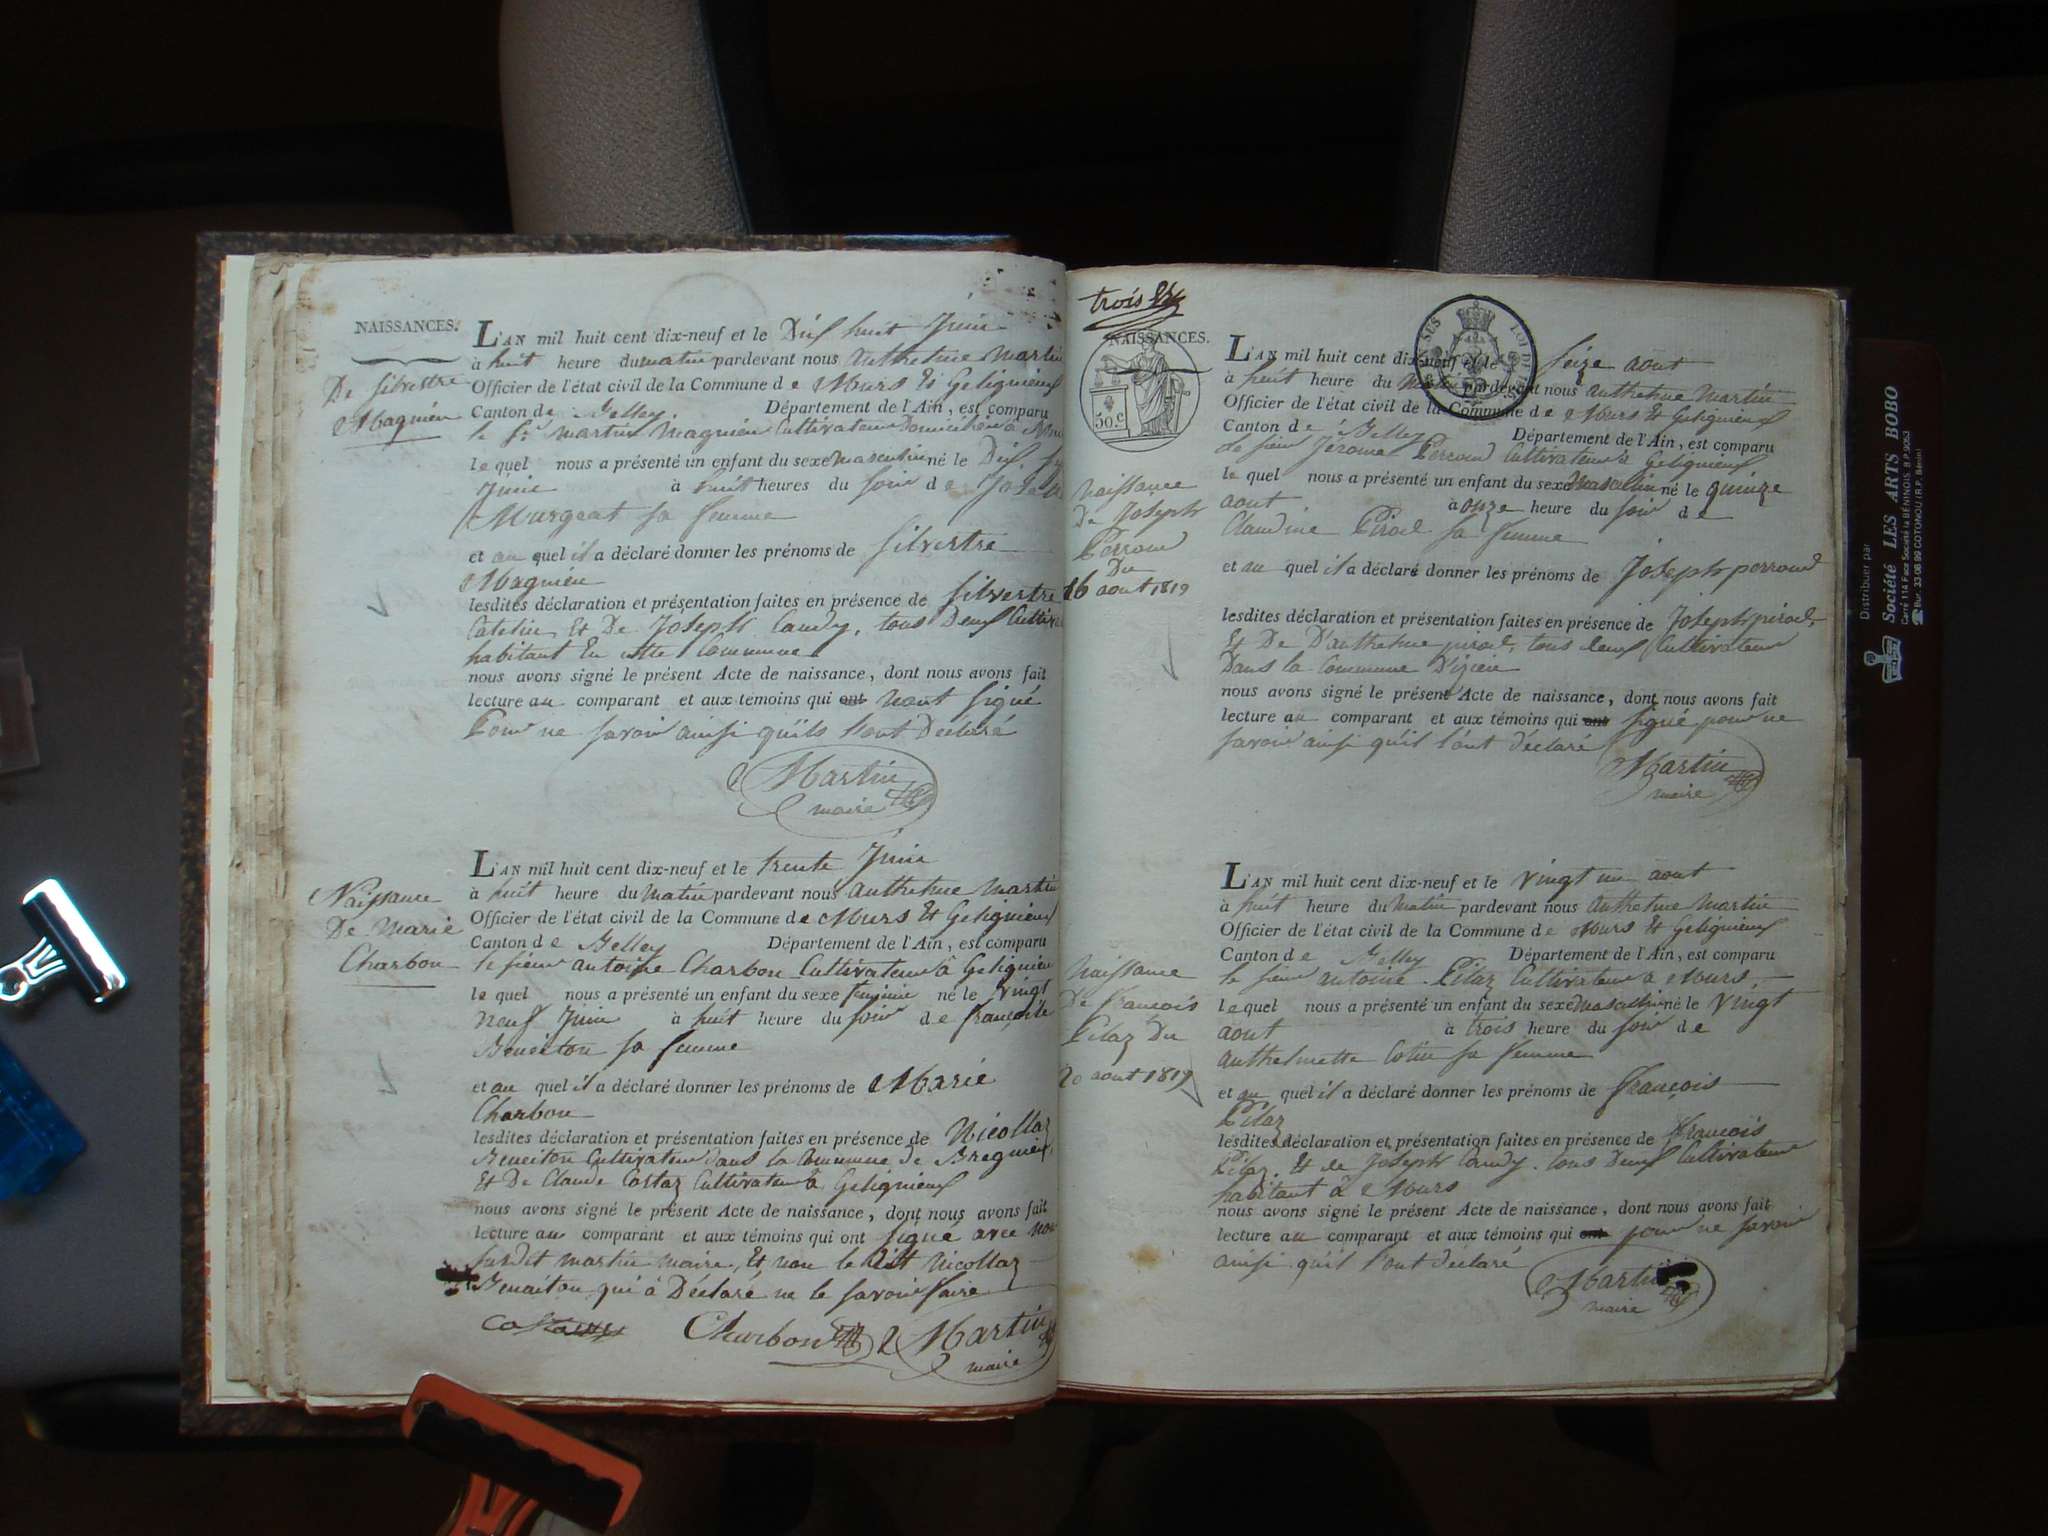 NAISSANCES.
De Silvestre
Magnien
L'AN mil huit cent dix-neuf et le Dix huit Juin
à huit heure du matin pardevant nous anthelme Martin
Officier de l'état civil de la Commune de Murs Et Gelignieux
Canton de Belley. Département de l'Ain, est comparu
le Sr. martin Magnien Cultivateur Domicilié à
lequel nous a présenté un enfant du sexe masculin né le Dix
Juin à huit heures du soir de
Murgeat sa femme
et au quel il a déclaré donner les prénoms de Silvestre
Magnien
lesdites déclaration et présentation faites en présence de Silvestre
Catelin Et De Joseph Caudy, tous Deux
habitant En cette Commune
nous avons signé le présent Acte de naissance, dont nous avons fait
lecture au comparant et aux témoins qui ont nont signé
Pour ne savoir ainsi qu'ils l'ont Déclaré
Martin
maire
Naissance
De Marie
Charbon
L'AN mil huit cent dix-neuf et le trente Juin
à huit heure du matin pardevant nous anthelme Martin
Officier de l'état civil de la Commune de Murs Et Gelignieux
Canton de Belley Département de l'Ain, est comparu
le sieur antoine Charbon Cultivateur à Gelignieu
lequel nous a présenté un enfant du sexe feminin né le vingt
neuf Juin à huit heure du soir de françoise
Beneiton sa femme
et au quel il a déclaré donner les prénoms de Marie
Charbon
lesdites déclaration et présentation faites en présence de Nicollaz
Beneiton Cultivateur dans la Commune de Bregnieux,
Et De Claude Costaz Cultivateur à Gelignieux
nous avons signé le présent Acte de naissance, dont nous avons fait
lecture au comparant et aux témoins qui ont signé avec nou
surdit martin maire, Et non le dit Nicollaz
Benaiton qui à Déclaré ne le savoir faire
Charbon Martin
maire
trois
NAISSANCES.
50 c
Naissance
De Joseph
Perroud
Du
16 aout 1819
L'AN mil huit cent dix-neuf et le seize aout
à huit heure du matin pardevant nous anthelme Martin
Officier de l'état civil de la Commune de Murs Et Gelignieux
Canton de Belley Département de l'Ain, est comparu
le sieur Jérome Perroud Cultivateur à Gelignieux
lequel nous a présenté un enfant du sexe masculin né le quinze
aout à onze heure du soir de
Claudine Pirod sa femme
et au quel il a déclaré donner les prénoms de Joseph perroud
lesdites déclaration et présentation faites en présence de Joseph pirod,
Et De D'anthelme pirod, tous deux Cultivateur
Dans la Commune D'izieu
nous avons signé le présent Acte de naissance, dont nous avons fait
lecture au comparant et aux témoins qui ont signé pour ne
savoir ainsi qu'il l'ont déclaré
Martin
maire
Naissance
De françois
Pilaz Du
20 aout 1819
L'AN mil huit cent dix-neuf et le vingt un aout
à huit heure du matin pardevant nous anthelme Martin
Officier de l'état civil de la Commune de Murs Et Gelignieux
Canton de Belley Département de l'Ain, est comparu
le sieur antoine Pilaz Cultivateur à Murs,
lequel nous a présenté un enfant du sexe masculin né le vingt
aout à trois heure du soir de
anthelmette Colin sa femme
et au quel il a déclaré donner les prénoms de françois
Pilaz
lesdites déclaration et présentation faites en présence de françois
Pilaz, Et de Joseph Caudy, tous Deux Cultivateur
habitant à Murs
nous avons signé le présent Acte de naissance, dont nous avons fait
lecture au comparant et aux témoins qui ont pour ne savoir
ainsi qu'il l'ont déclaré
Martin
maire
Distribuer par
Société LES ARTS BOBO
Carré 114 Face Société la BÉNINOISE B.P. 9053
Bur. 33 08 99 COTONOU (R.P. Bénin)